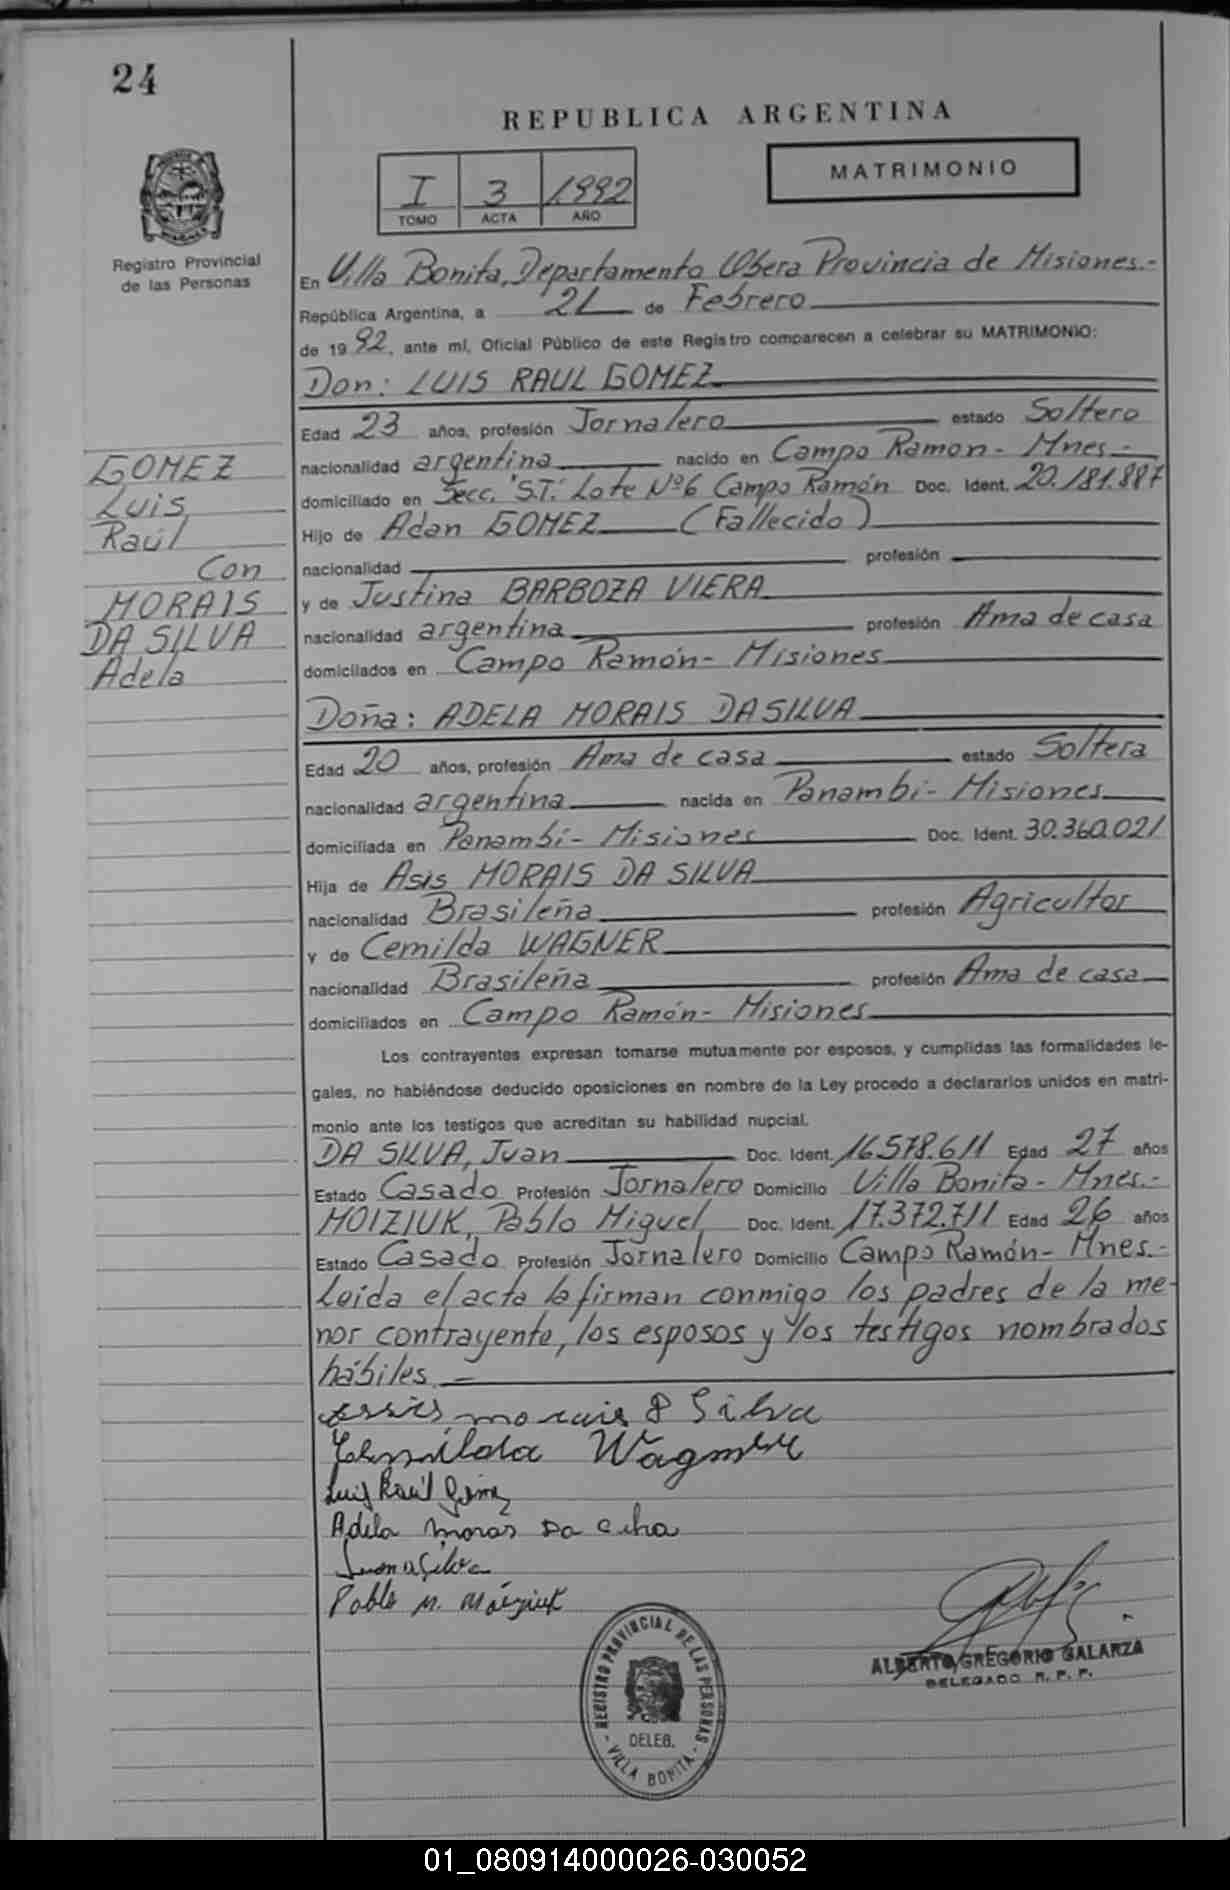 24
REPUBLICA ARGENTINA
I 3 1992
TOMO ACTA AÑO
MATRIMONIO
Registro Provincial
de las Personas
En Villa Bonita, Departamento Obera Provincia de Misiones.-
República Argentina, a 21 de Febrero
de 1992, ante mí, Oficial Público de este Registro comparecen a celebrar su MATRIMONIO:
Don: LUIS RAUL GOMEZ
Edad 23 años, profesión Jornalero estado Soltero
nacionalidad argentina nacido en Campo Ramon - Mnes.-
domiciliado en Secc. "S.T." Lote Nº6 Campo Ramón Doc. Ident. 20.181.887
Hijo de Adan GOMEZ (Fallecido)
nacionalidad profesión
y de Justina BARBOZA VIERA
nacionalidad argentina profesión Ama de casa
domiciliados en Campo Ramón - Misiones
GOMEZ
Luis
Raúl
Con
MORAIS
DA SILVA
Adela
Doña: ADELA MORAIS DA SILVA
Edad 20 años, profesión Ama de casa estado Soltera
nacionalidad argentina nacida en Panambi - Misiones
domiciliada en Panambí - Misiones Doc. Ident. 30.360.021
Hija de Asis MORAIS DA SILVA
nacionalidad Brasileña profesión Agricultor
y de Cemilda WAGNER
nacionalidad Brasileña profesión Ama de casa
domiciliados en Campo Ramón - Misiones
Los contrayentes expresan tomarse mutuamente por esposos, y cumplidas las formalidades le-
gales, no habiéndose deducido oposiciones en nombre de la Ley procedo a declararlos unidos en matri-
monio ante los testigos que acreditan su habilidad nupcial.
DA SILVA, Juan Doc. Ident. 16.578.611 Edad 27 años
Estado Casado Profesión Jornalero Domicilio Villa Bonita - Mnes.-
MOIZIUK, Pablo Miguel Doc. Ident. 17.372.711 Edad 26 años
Estado Casado Profesión Jornalero Domicilio Campo Ramón - Mnes.-
Leída el acta la firman conmigo los padres de la me-
nor contrayente, los esposos y los testigos nombrados
hábiles.-
morais Silva
Wagner
Luis Raúl Gómez
Adela Morais Da
Pablo M. Moiziuk
ALBERTO GREGORIO GALARZA
DELEGADO R. P. P.
REGISTRO PROVINCIAL DE LAS PERSONAS
DELEG.
- VILLA BONITA -
01_080914000026-030052